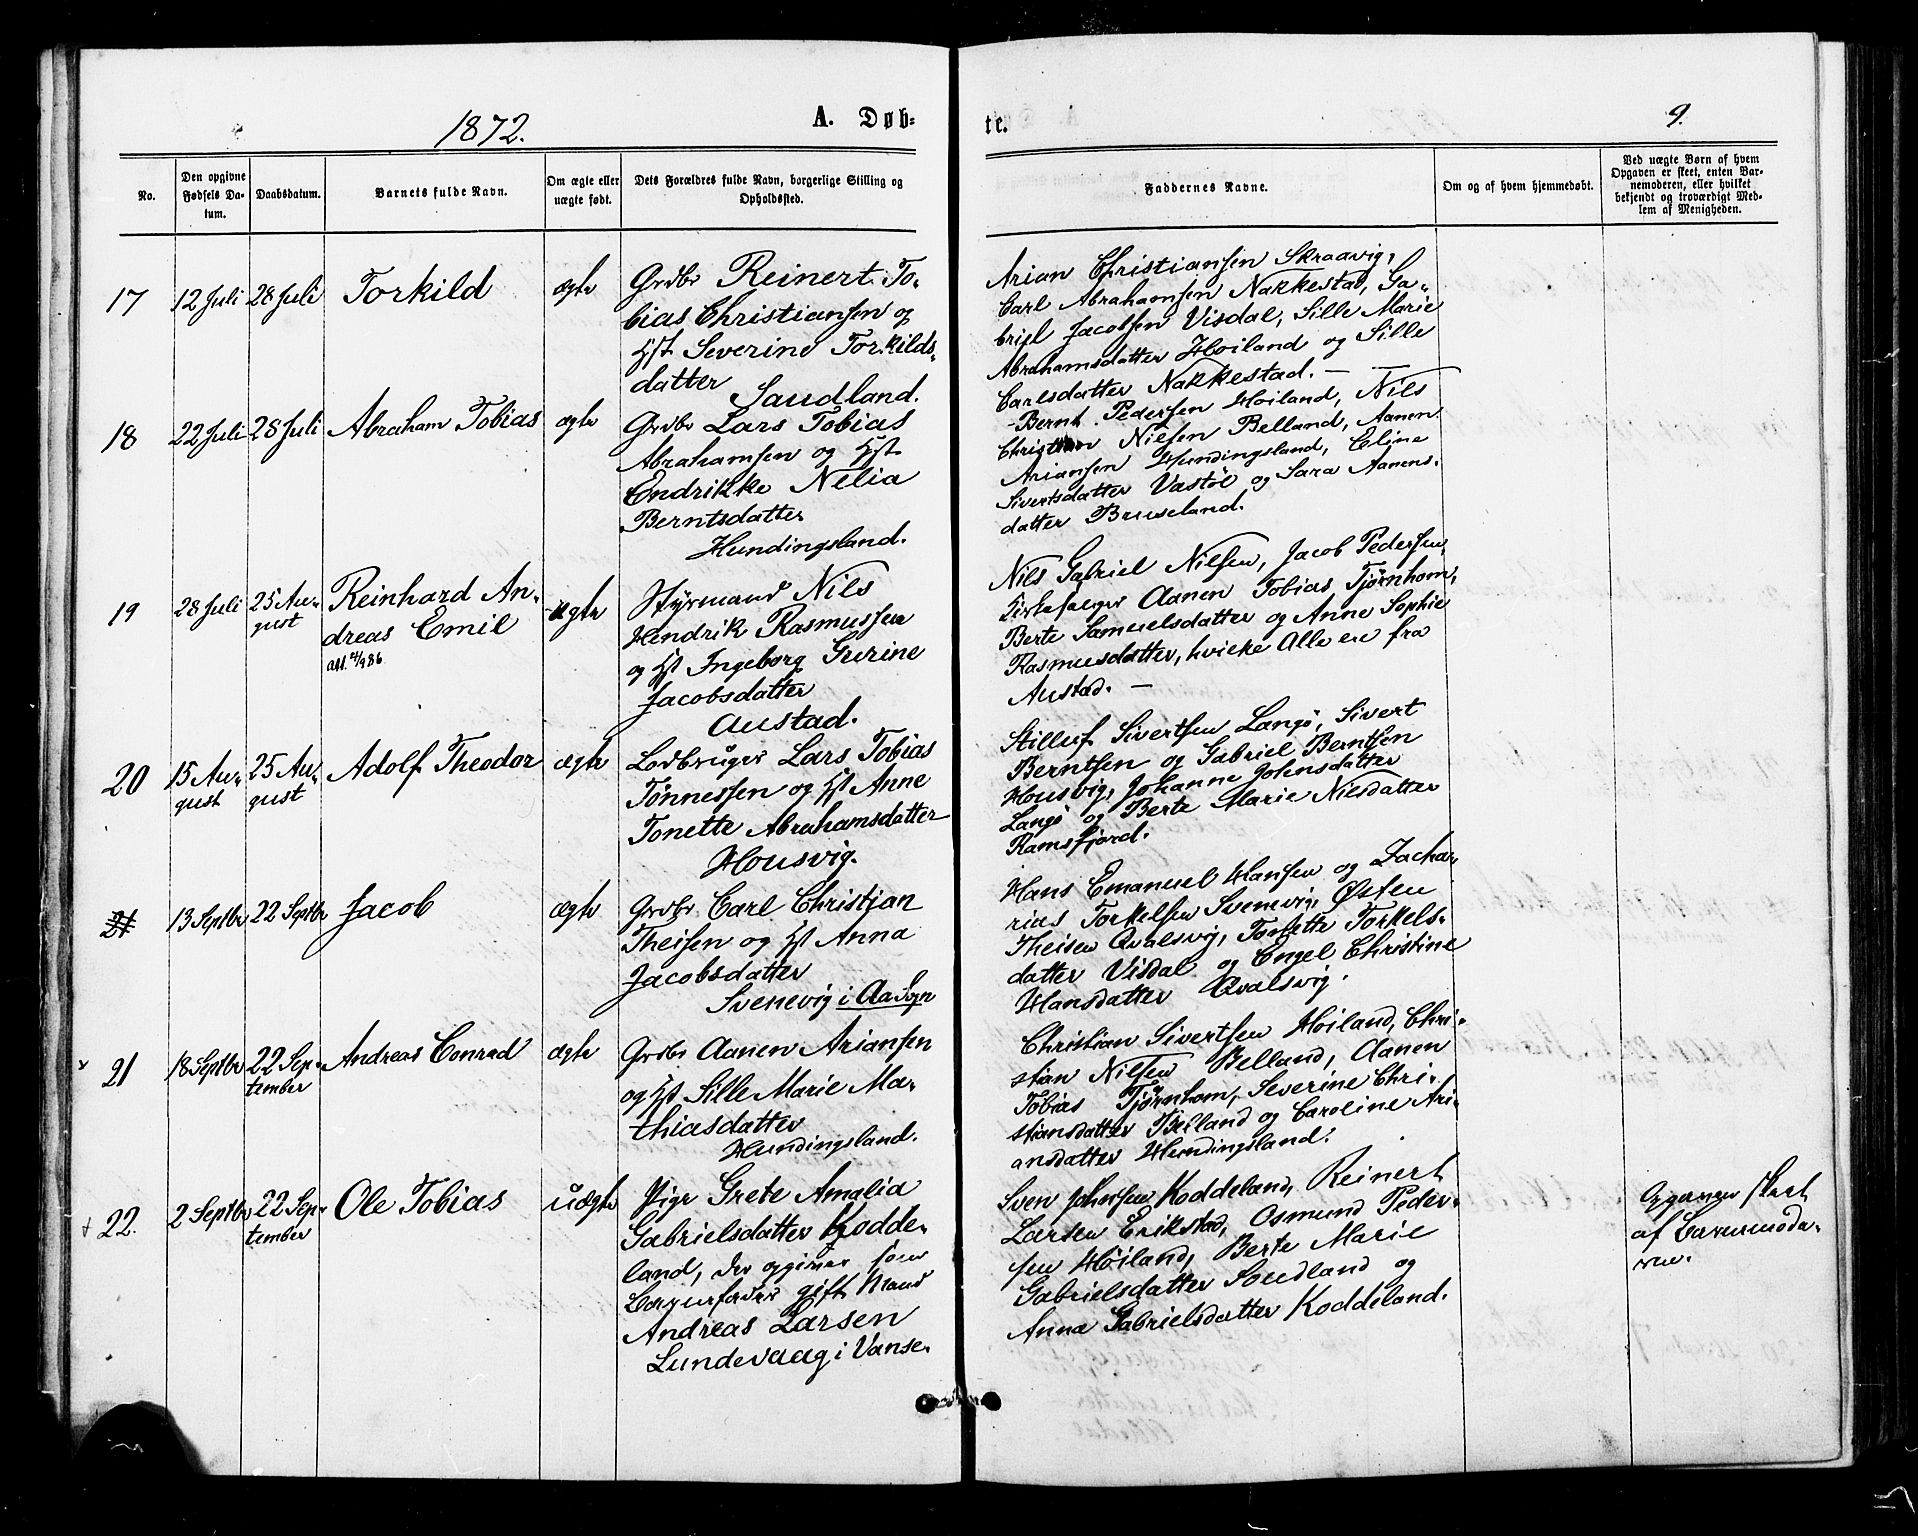 1872.
A. Døb-
te.
9.
No.
Den opgivne
Fødsels Da-
tum.
Daabsdatum.
Barnets fulde Navn.
Om ægte eller
uægte født.
Dets Forældres fulde Navn, borgerlige Stilling og
Opholdssted.
Faddernes Navne.
Om og af hvem hjemmedøbt.
Ved uægte Børn af hvem
Opgaven er skeet, enten Bar-
nemoderen, eller hvilket
bekjendt og troværdigt Med-
lem af Menigheden.
17
12 Juli
28 Juli
Torkild
ægte
Grdbr Reinert To-
bias Christiansen og
Hst Severine Torkilds-
datter
Sandland.
Arian Christiansen Skraavig,
Carl Abrahamsen Nakkestad, Ga-
briel Jacobsen Visdal, Sille Marie
Abrahamsdatter Høiland og Sille
Carlsdatter Nakkestad. —
18
22 Juli
28 Juli
Abraham Tobias
ægte
Grdbr Lars Tobias
Abrahamsen og Hst
Endrikke Nelia
Berntsdatter
Hundingsland.
Bernt Pedersen Høiland, Nils
Christian Nielsen Belland, Aanen
Ariansen Hundingsland, Eline
Sivertsdatter Vastøl og Sara Aanens-
datter Bruseland.
19
28 Juli
25 Au-
gust
Reinhard An-
dreas Emil
ægte
Styrmand Nils
Hendrik Rasmussen
og Hst Ingeborg Gurine
Jacobsdatter
Austad.
Nils Gabriel Nilsen, Jacob Pedersen,
Kirkesanger Aanen Tobias Tjørnhom,
Berte Samuelsdatter og Anne Sophie
Rasmusdatter, hvilke Alle ere fra
Austad. —
20
15 Au-
gust
25 Au-
gust
Adolf Theodor
ægte
Lodbruger Lars Tobias
Tønnessen og Hst Anne
Tonette Abrahamsdatter
Housvig.
Stilluf Sivertsen Langø, Sivert
Berntsen og Gabriel Berntsen
Housvig, Johanne Johnsdatter
Langø og Berte Marie Nilsdatter
Ramsfjord.
21
13 Septbr
22 Septbr
Jacob
ægte
Grdbr Carl Christian
Theisen og Hst Anna
Jacobsdatter
Svenevig i Aa Sogn
Hans Emanuel Hansen og Zacha-
rias Torkelsen Svenevig, Østen
Theisen Qvalsvig, Torbette Torkels-
datter Visdal og Engel Christine
Hansdatter Qvalsvig.
21
18 Septbr
22 Sep-
tember
Andreas Conrad
ægte
Grdbr Aanen Ariansen
og Hst Sille Marie Ma-
thiasdatter
Hundingsland.
Christian Sivertsen Høiland, Chri-
stian Nilsen Belland, Aanen
Tobias Tjørnhom, Severine Chri-
stiansdatter Belland og Caroline Ari-
ansdatter Hundingsland.
22.
2 Septbr
22 Sep-
tember
Ole Tobias
uægte
Pige Grete Amalia
Gabrielsdatter Kodde-
land, der opgiver som
Barnefader gift Mand
Andreas Larsen
Lundevaag i Vanse.
Sven Johnsen Koddeland, Reinert
Larsen Erikstad, Osmund Peder-
sen Høiland, Berte Marie
Gabrielsdatter Sandland og
Anna Gabrielsdatter Koddeland.
Opgaven skeet
af Barnemode-
ren.